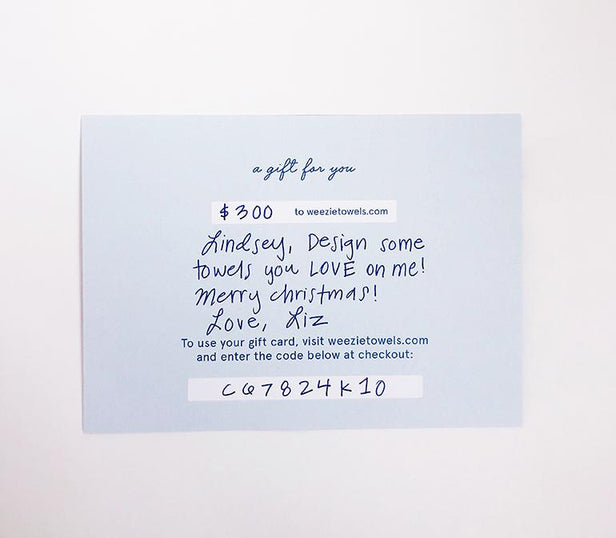 a gift for you
$300 to weezietowels.com
Lindsey, Design some
towels you LOVE on me!
Merry christmas!
Love, Liz
To use your gift card, visit weezietowels.com
and enter the code below at checkout:
CG7824K10